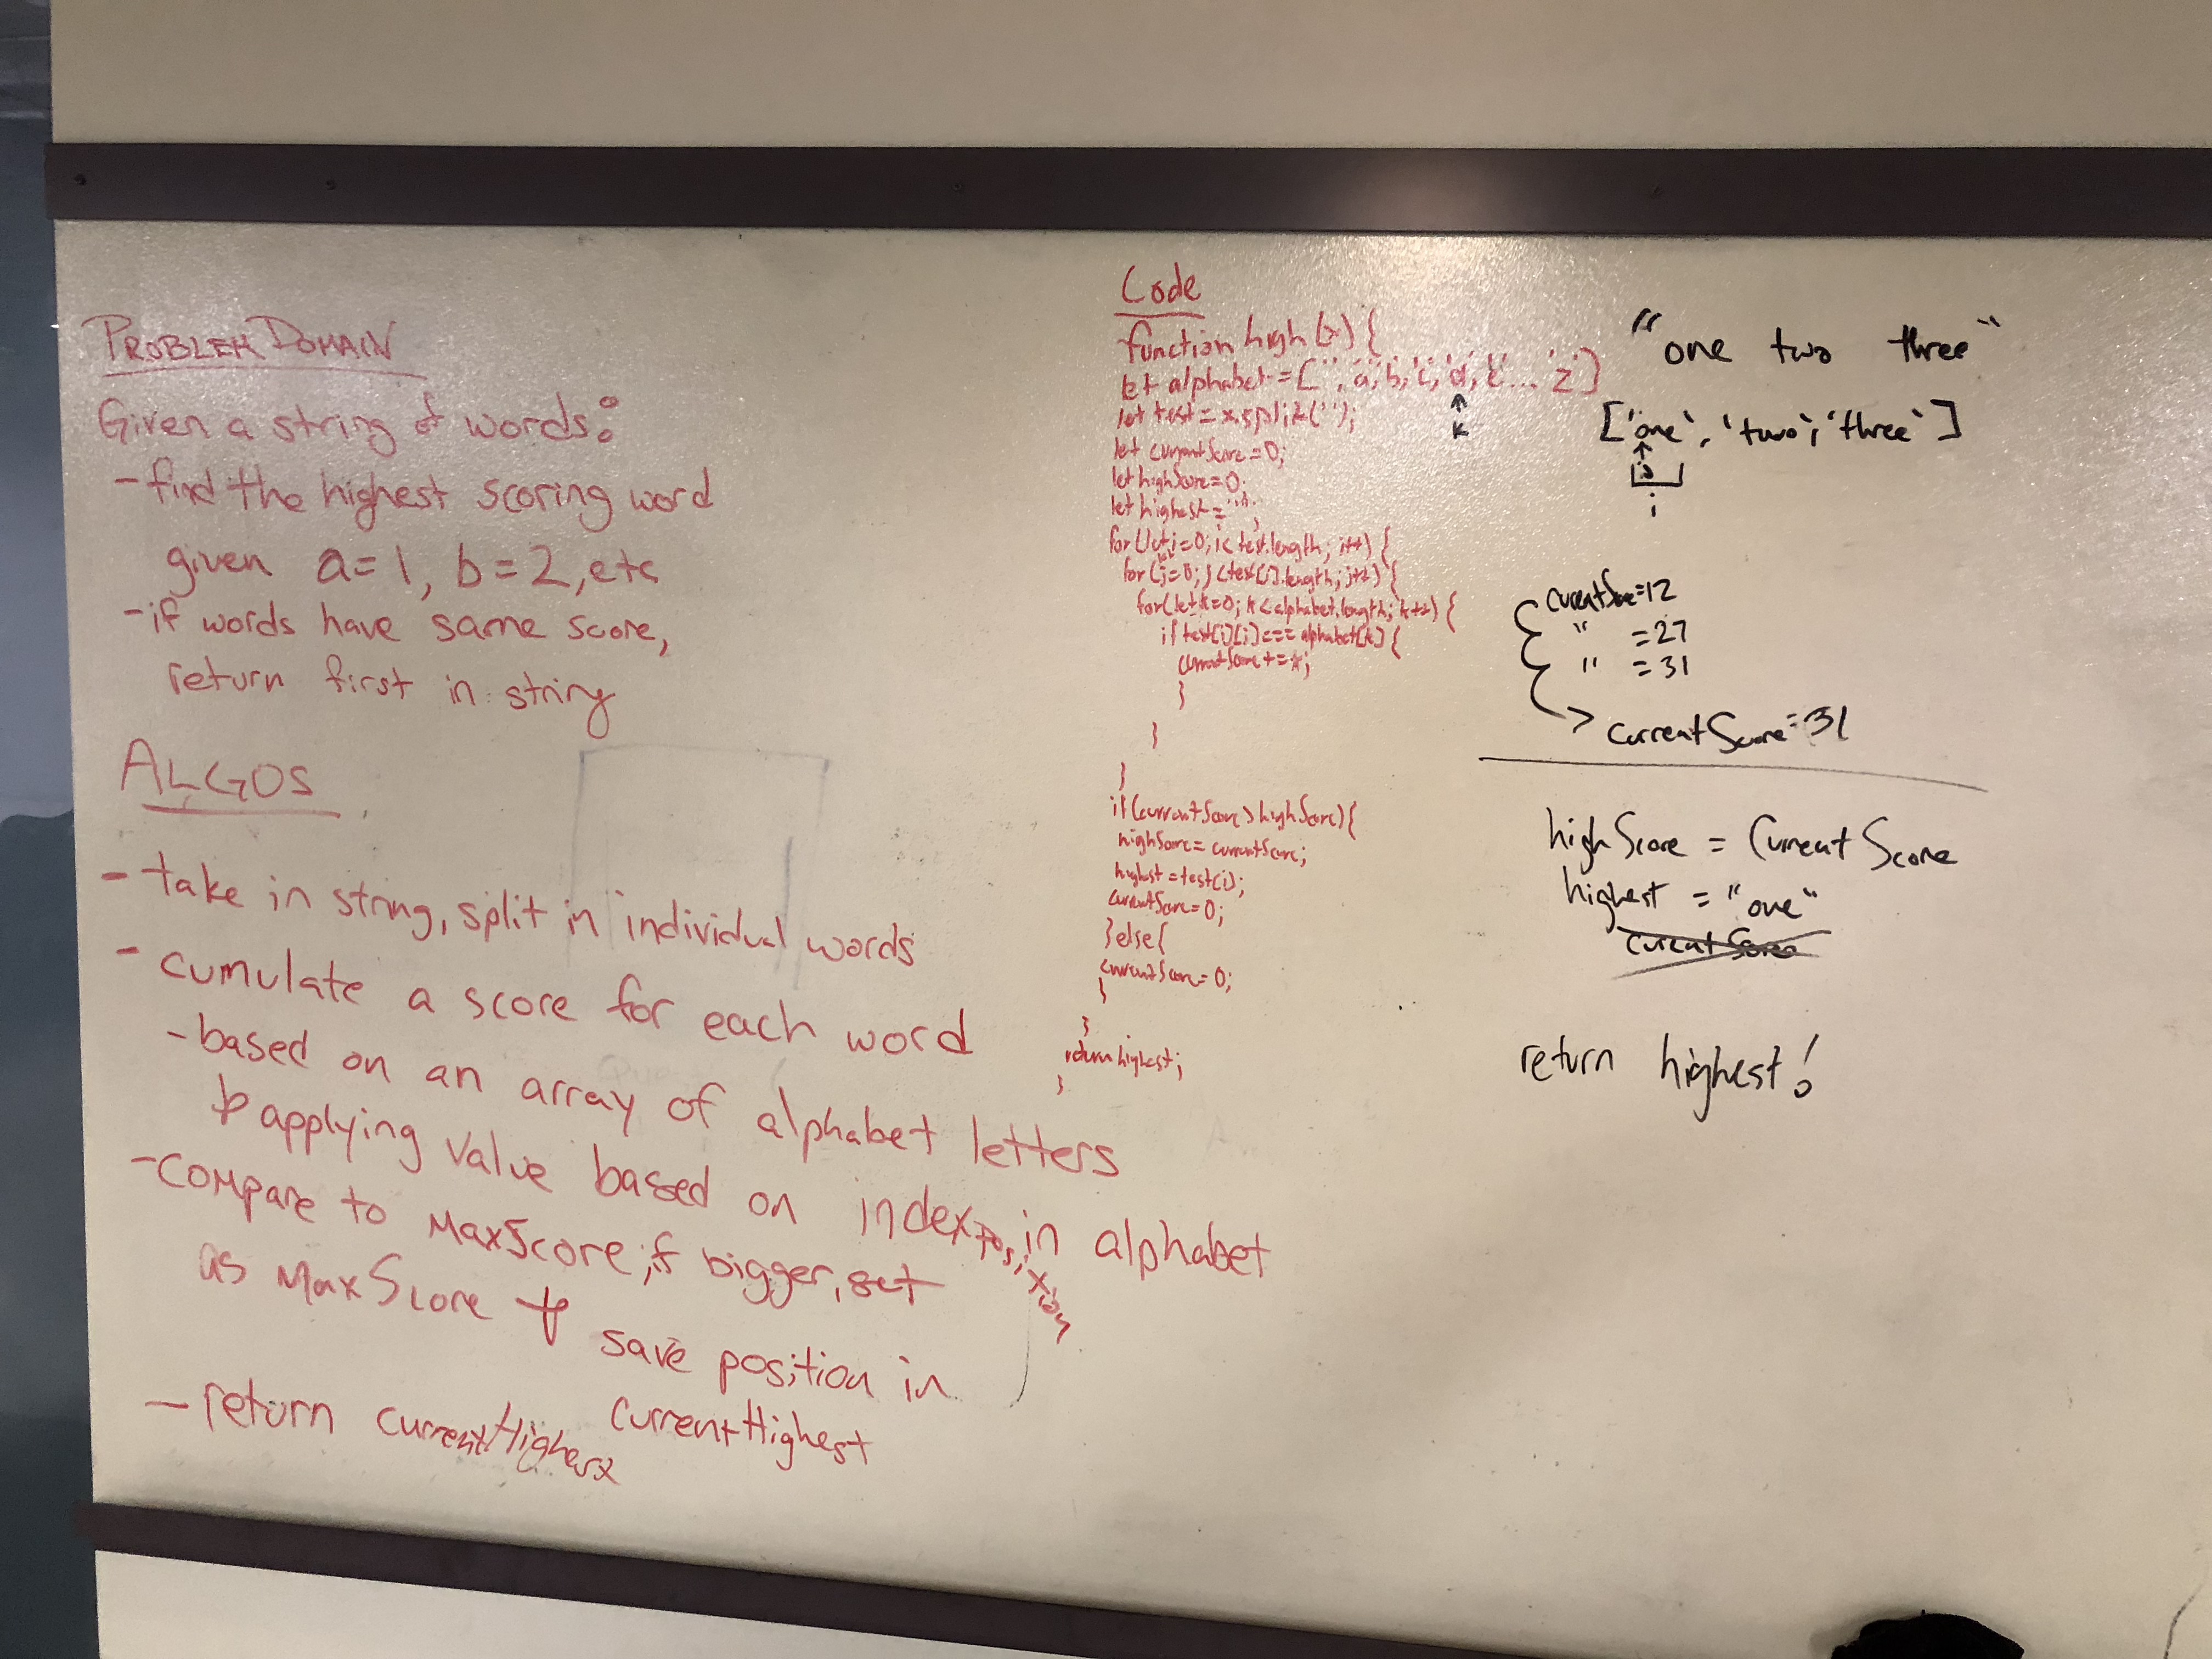 PROBLEM DOMAIN
Given a string of words:
- find the highest scoring word
given a=1, b=2, etc
- if words have same score,
return first in string
ALGOS
- take in string, split in individual words
- cumulate a score for each word
- based on an array of alphabet letters
applying value based on index position in alphabet
- compare to MaxScore; if bigger, set
as MaxScore + save position in
currentHighest
- return currentHighest
Code
function high(x) {
let alphabet = ['', 'a', 'b', 'c', 'd', 'e' ... 'z']
k
let test = x.split(' ');
let currentScore = 0;
let highScore = 0;
let highest = '';
for (let i=0; i< test.length; i++) {
for (let j=0; j< test[i].length; j++) {
for (let k=0; k< alphabet.length; k++) {
if test[i][j] === alphabet[k] {
currentScore += k;
}
}
}
if (currentScore > highScore) {
highScore = currentScore;
highest = test[i];
currentScore = 0;
} else {
currentScore = 0;
}
}
return highest;
}
"one two three"
['one', 'two', 'three']
j
i
currentScore = 12
" = 27
" = 31
currentScore = 31
highScore = CurrentScore
highest = "one"
return highest!